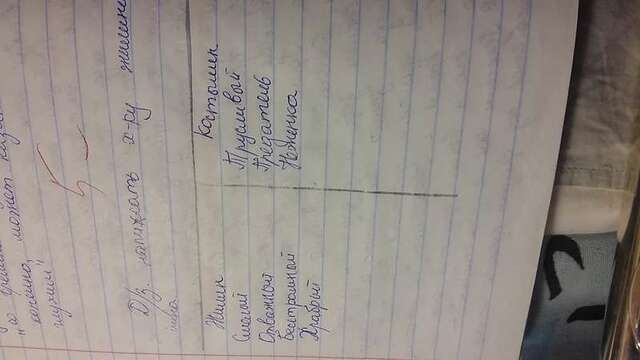 конечно, может
глухим"
5-
Д/з. написать х-ку жилина
Жилин Костылин
Смелый Трусливый
Отважный Предатель
Бесстрашный Неженка
Храбрый